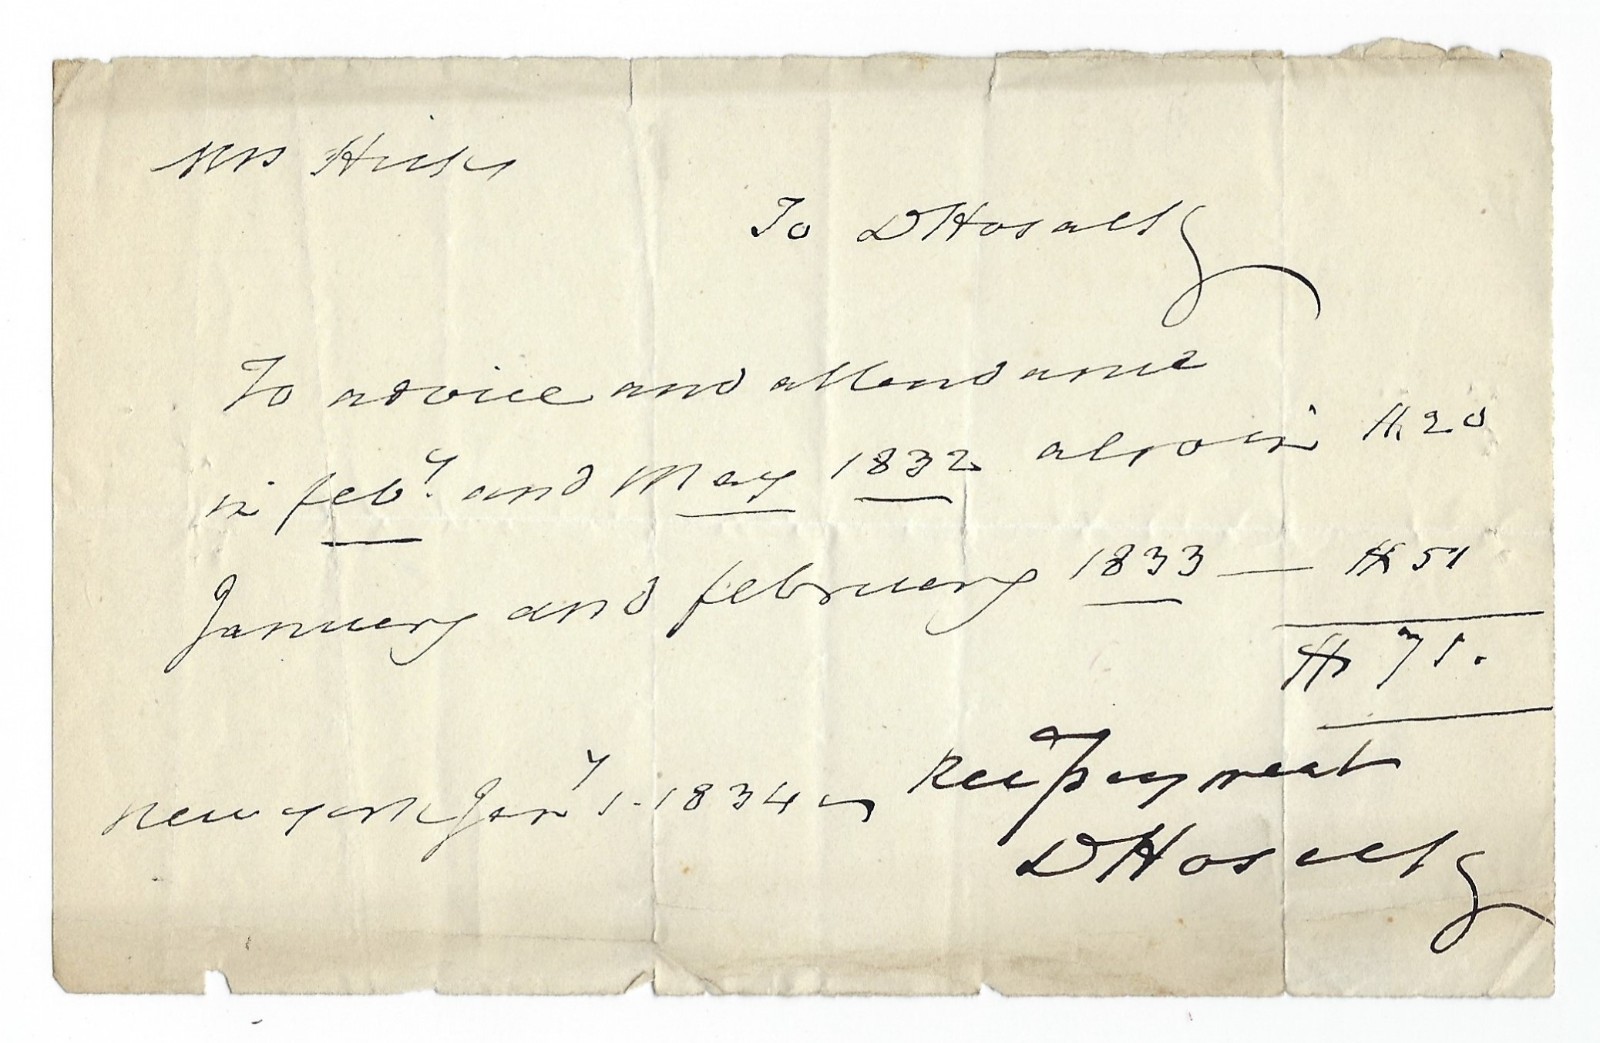 Mrs Hicks
To D Hosack
To advice and attendance
in feby. and May 1832 also in $ 20
January and february 1833 — $ 51
$ 71.
New york Jany 1. 1834 Rec payment
D Hosack